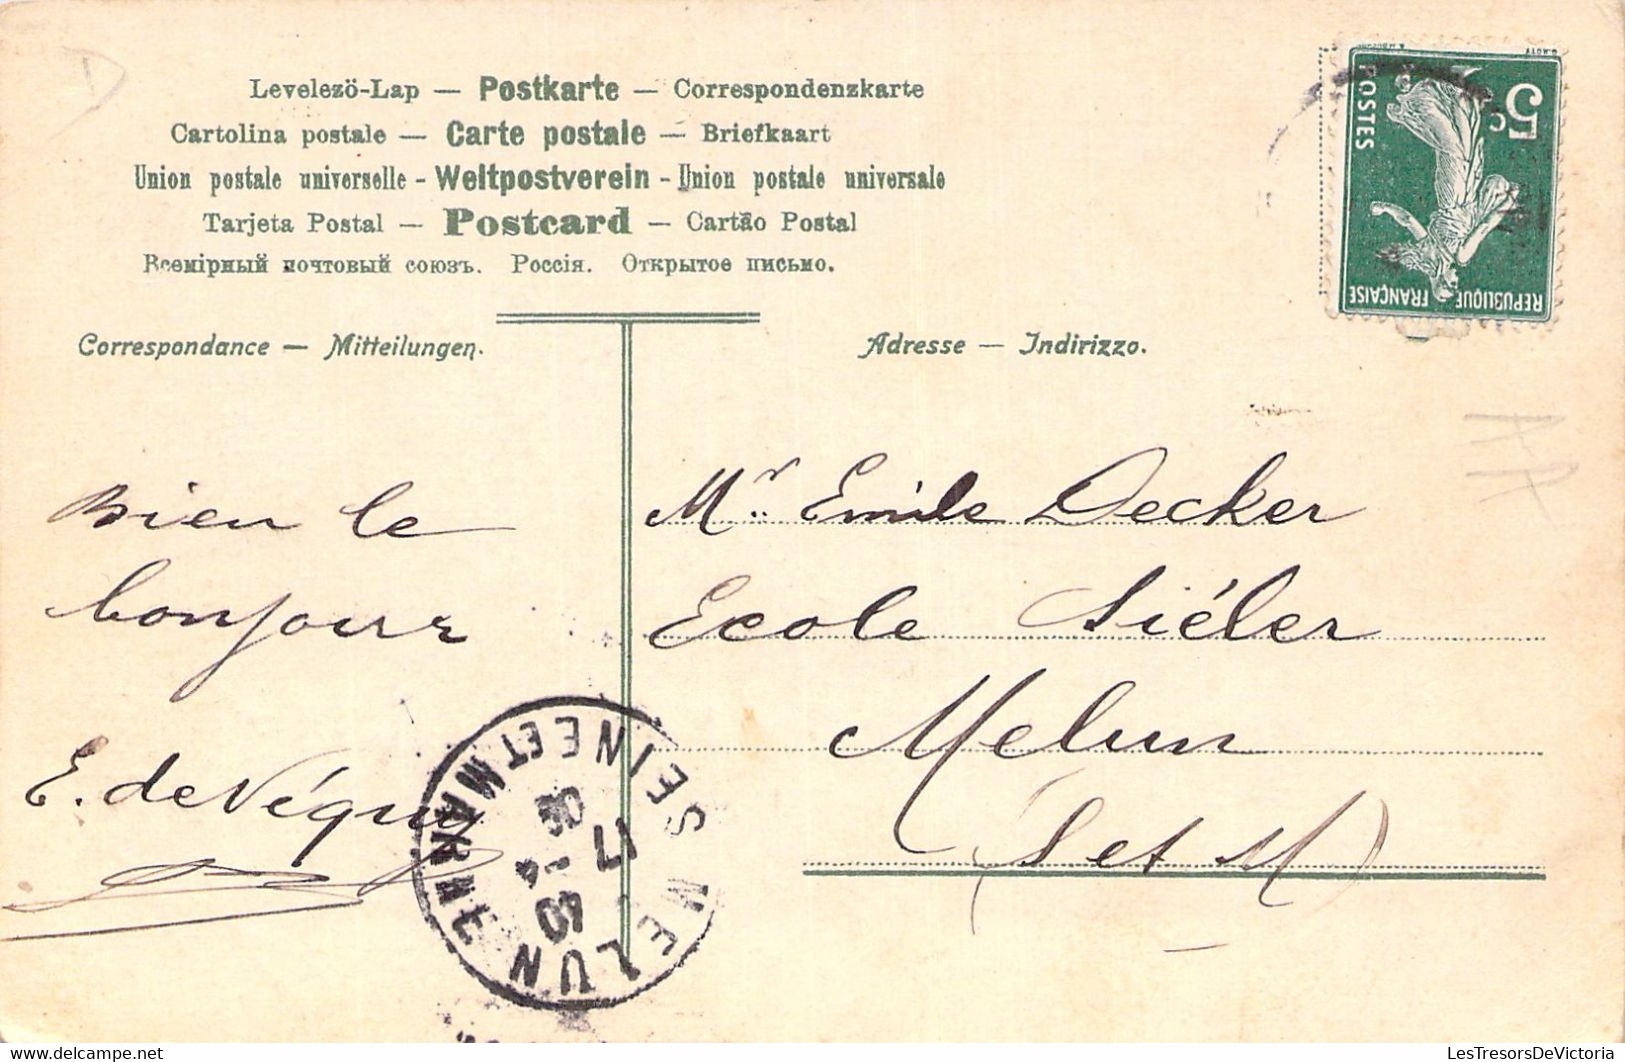 Levelező-Lap — Postkarte — Correspondenzkarte
Cartolina postale — Carte postale — Briefkaart
Union postale universelle - Weltpostverein - Union postale universale
Tarjeta Postal — Postcard — Cartão Postal
Всемірный почтовый союзъ. Россія. Открытое письмо.
Correspondance — Mitteilungen.
Adresse — Indirizzo.
5c
POSTES
REPUBLIQUE FRANÇAISE
Bien le
bonjour
E. de Véguy
Mr. Emile Decker
Ecole Siéler
Melun
(S et M)
MELUN
SEINE ET MARNE
17
-4
10
LesTresorsDeVictoria